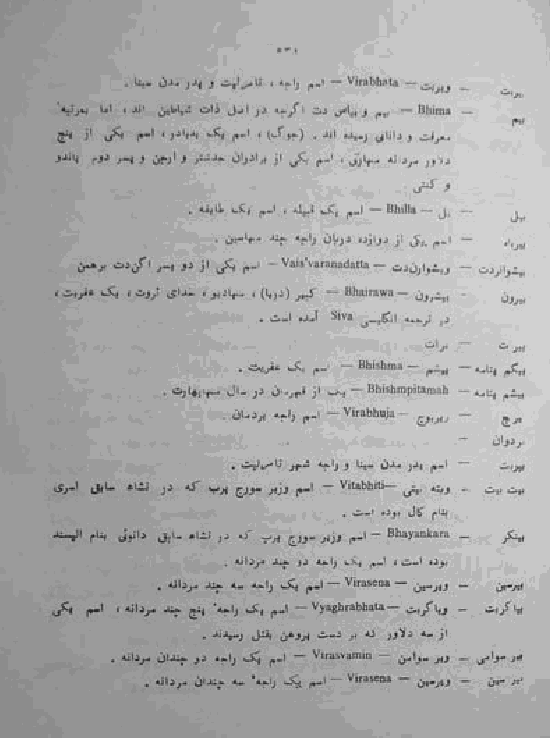 ۵۳۱
بیربت — ویربت — Virabhata — اسم راجه، تاملپت و پدر مدن سینا .
بیم — Bhima — بیم و بیاس دت اگرچه در اصل ذات شیاطین اند، اما بمرتبه
معرفت و دانائی رسیده اند . (جوگ)، اسم یک بهیادر، اسم یکی از پنج
دلاور مردانه ، اسم یکی از برادران جدشتر و ارجن و پسر دوم پاندو
و کنتی .
بیل — بل — Bhilla — اسم یک قبیله ، اسم یک طایفه .
— اسم یکی از دوازده دربان راجه چند مهاسین .
بیشوانردت — ویشوارندت — Vais'varanadatta — اسم یکی از دو پسر اگن‌دت برهمن
بیرون — بیشرون — Bhairawa — کبیر (دوپا)، مهادیو ، خدای ثروت ، یک عفریت ،
در ترجمه انگلیسی Siva آمده است .
بیرت — برات
بیگم پتامه — بیشم — Bhishma — اسم یک عفریت .
بیشم پتامه — Bhishmpitamah — یک از قهرمان در سال مهابهارت .
بیرج — ویربوج — Virabhuja — اسم راجه بردمان
بردوان —
بیربت — اسم پدر مدن سینا و راجه شهر تاملپت .
بیت بیت — ویته بیتی — Vitabhiti — اسم وزیر سورج پرب که در نشاه سابق اسری
بنام کال بوده است .
بینکر — Bhayankara — اسم وزیر سورج پرب که در نشاه سابق دانوئی بنام الپسند
بوده است ، اسم یک راجه دو چند مردانه .
بیرسین — ویرسین — Virasena — اسم یک راجه سه چند مردانه .
بیاگربت — ویاگربت — Vyaghrabhata — اسم یک راجه پنج چند مردانه ، اسم یکی
از سه دلاور که بر دست پروهن بقتل رسیدند .
بیر سوامی — ویر سوامن — Virasvamin — اسم یک راجه دو چندان مردانه .
بیر سین — ویرسین — Virasena — اسم یک راجه سه چندان مردانه .